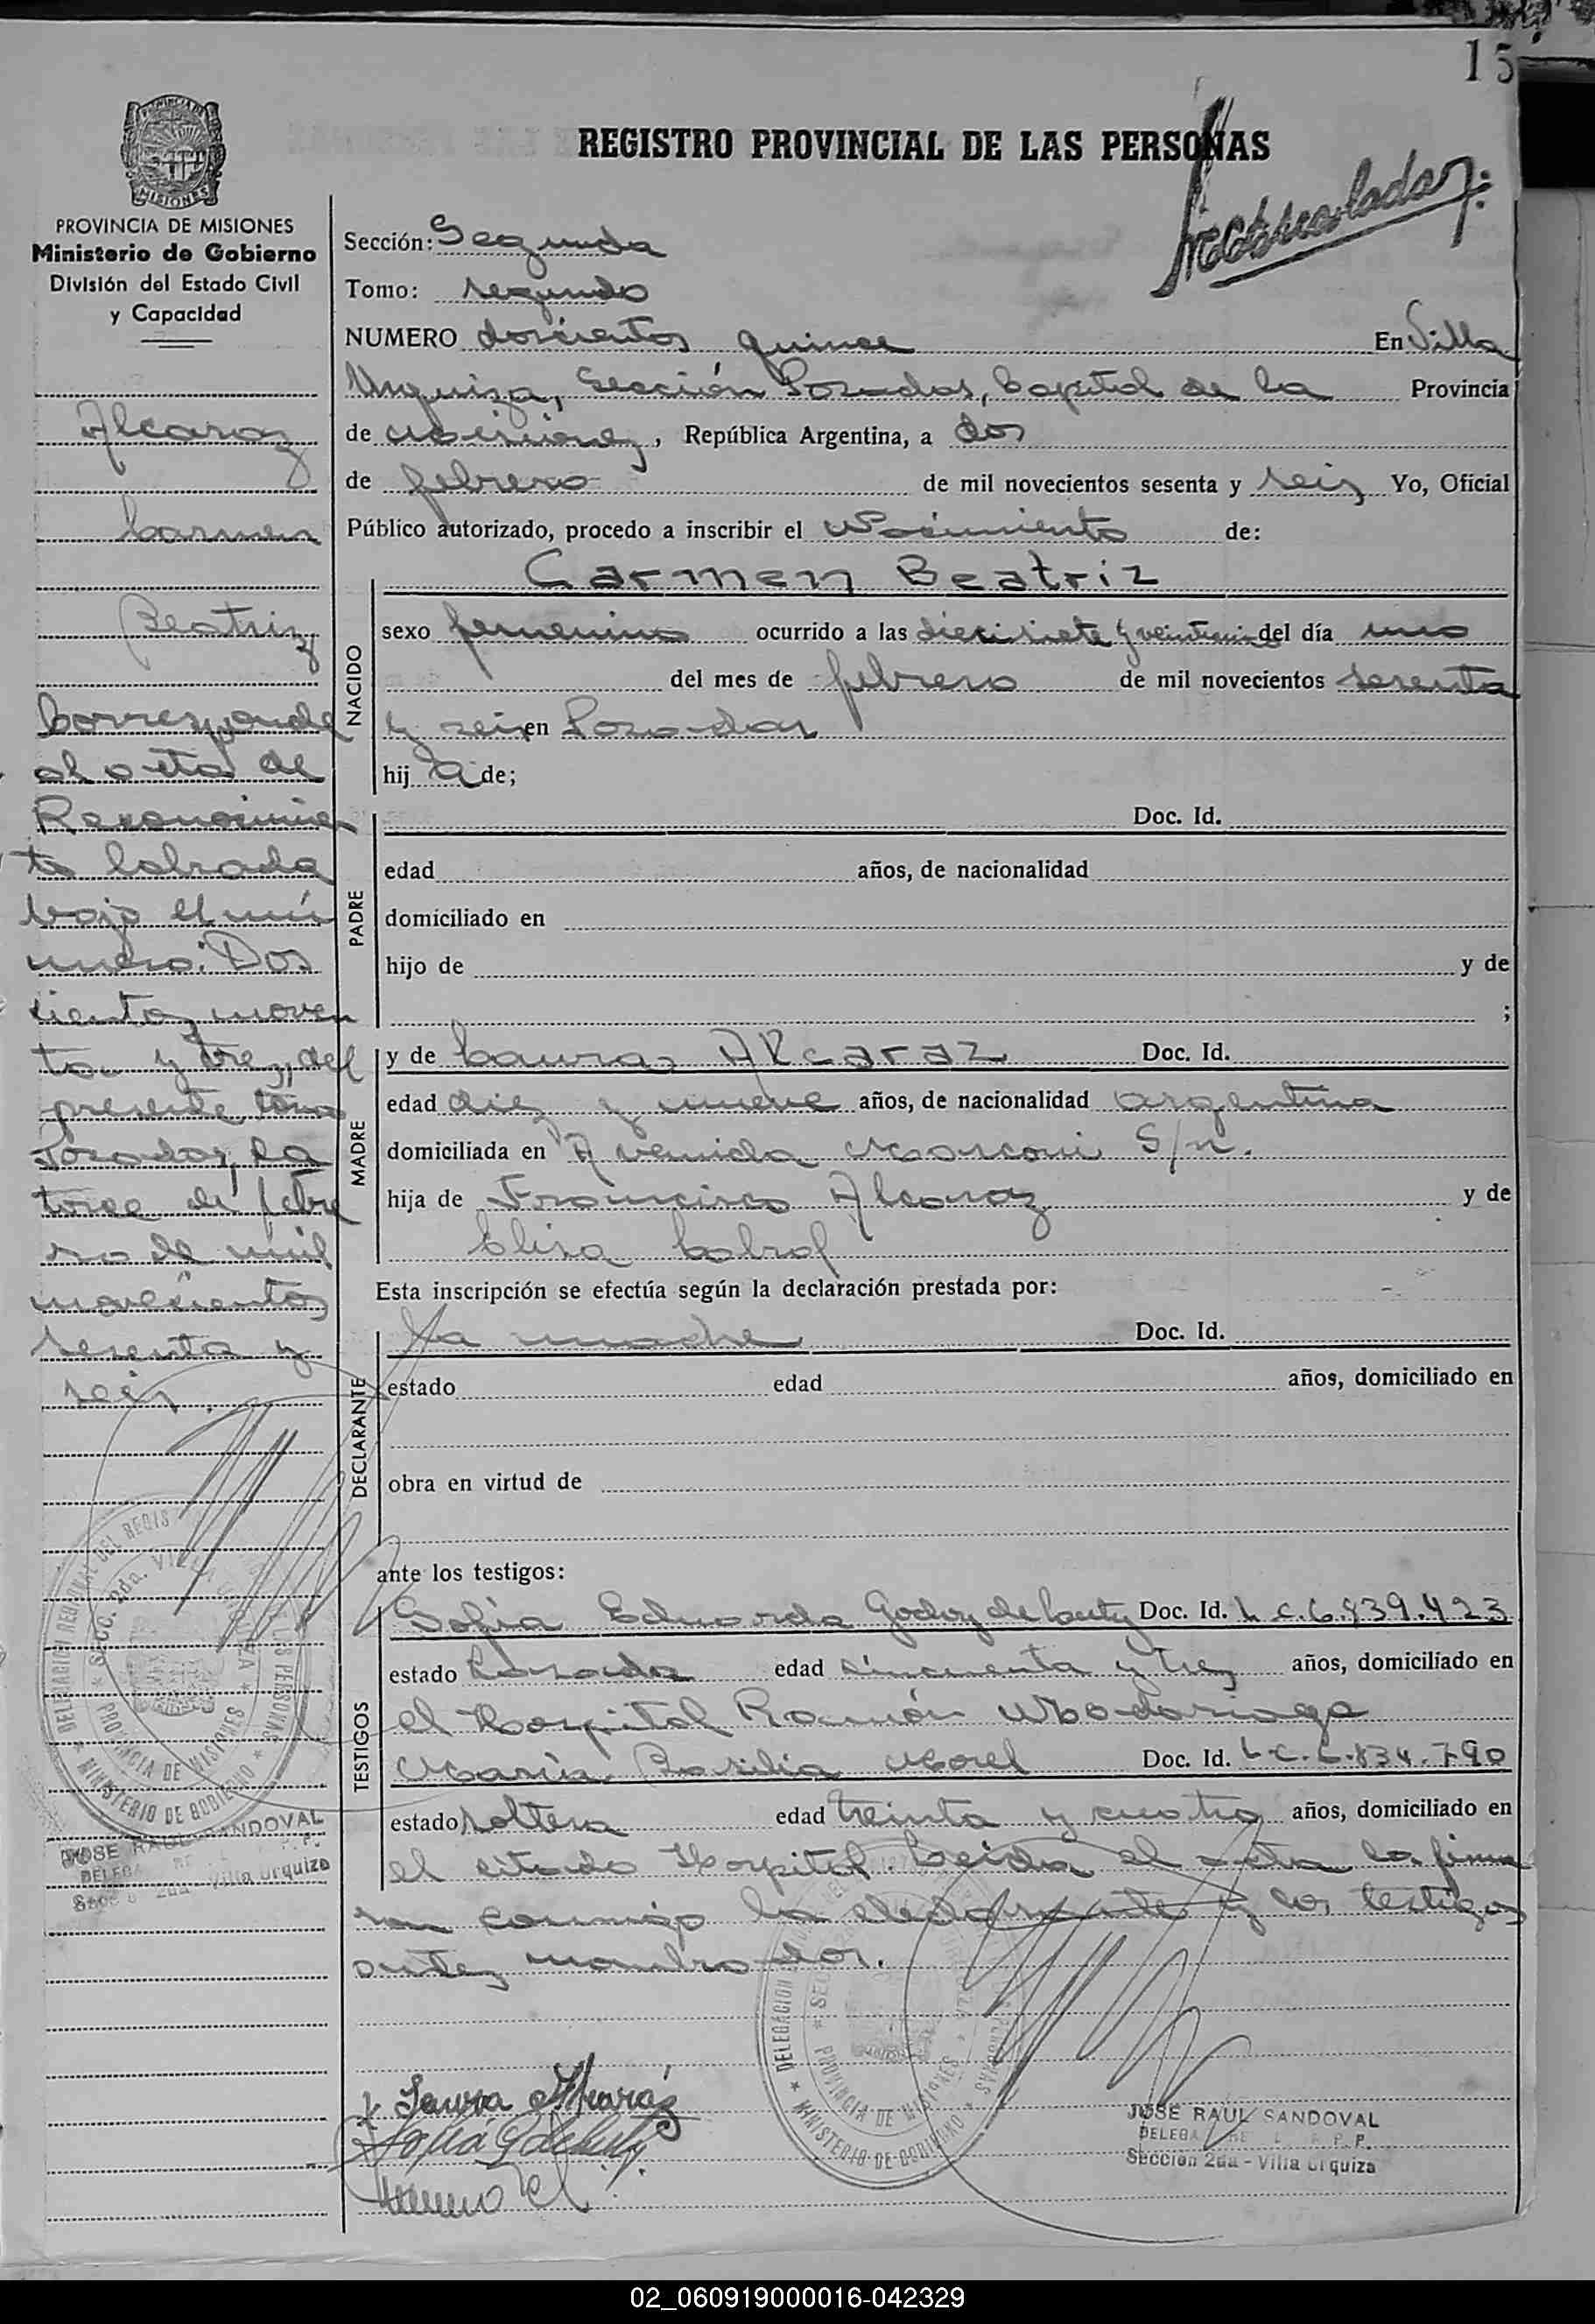 15
REGISTRO PROVINCIAL DE LAS PERSONAS
PROVINCIA DE MISIONES
Ministerio de Gobierno
División del Estado Civil
y Capacidad
Alcaraz
Carmen
Beatriz
Corresponde
al acta de
Reconocimien
to labrada
bajo el nú
mero: Dos
cientos noven
ta y tres, del
presente tomo
Posadas, ca
torce de febre
ro de mil
novecientos
sesenta y
seis.
JOSE RAUL SANDOVAL
Sección 2da - Villa Urquiza
Sección: Segunda
Tomo: segundo
NUMERO doscientos quince En Villa
Urquiza, Sección Posadas, Capital de la Provincia
de Misiones, República Argentina, a dos
de febrero de mil novecientos sesenta y seis Yo, Oficial
Público autorizado, procedo a inscribir el Nacimiento de:
NACIDO
Carmen Beatriz
sexo femenino ocurrido a las diecisiete y veinte del día uno
del mes de febrero de mil novecientos sesenta
y seis en Posadas
hij a de;
PADRE
Doc. Id.
edad años, de nacionalidad
domiciliado en
hijo de y de
;
MADRE
y de Laura Alcaraz Doc. Id.
edad diez y nueve años, de nacionalidad argentina
domiciliada en Avenida Marconi S/n.
hija de Francisco Alcaraz y de
Elisa Cabral
Esta inscripción se efectúa según la declaración prestada por:
DECLARANTE
la madre Doc. Id.
estado edad años, domiciliado en
obra en virtud de
ante los testigos:
TESTIGOS
Sofia Eduarda Godoy de Doc. Id. L.C.6.839.423
estado Casada edad cincuenta y tres años, domiciliado en
el Hospital Ramón Madariaga
María Basilia Morel Doc. Id. L.C.6.834.790
estado soltera edad treinta y cuatro años, domiciliado en
el citado Hospital. Leída el acta la firma
ron conmigo la declarante y los testigos
antes nombrados.
DELEGACION REGIONAL DEL REGISTRO DE LAS PERSONAS
SECC. 2da. VILLA URQUIZA
PROVINCIA DE MISIONES
MINISTERIO DE GOBIERNO
Laura Alcaráz
JOSE RAUL SANDOVAL
Sección 2da - Villa Urquiza
02_060919000016-042329